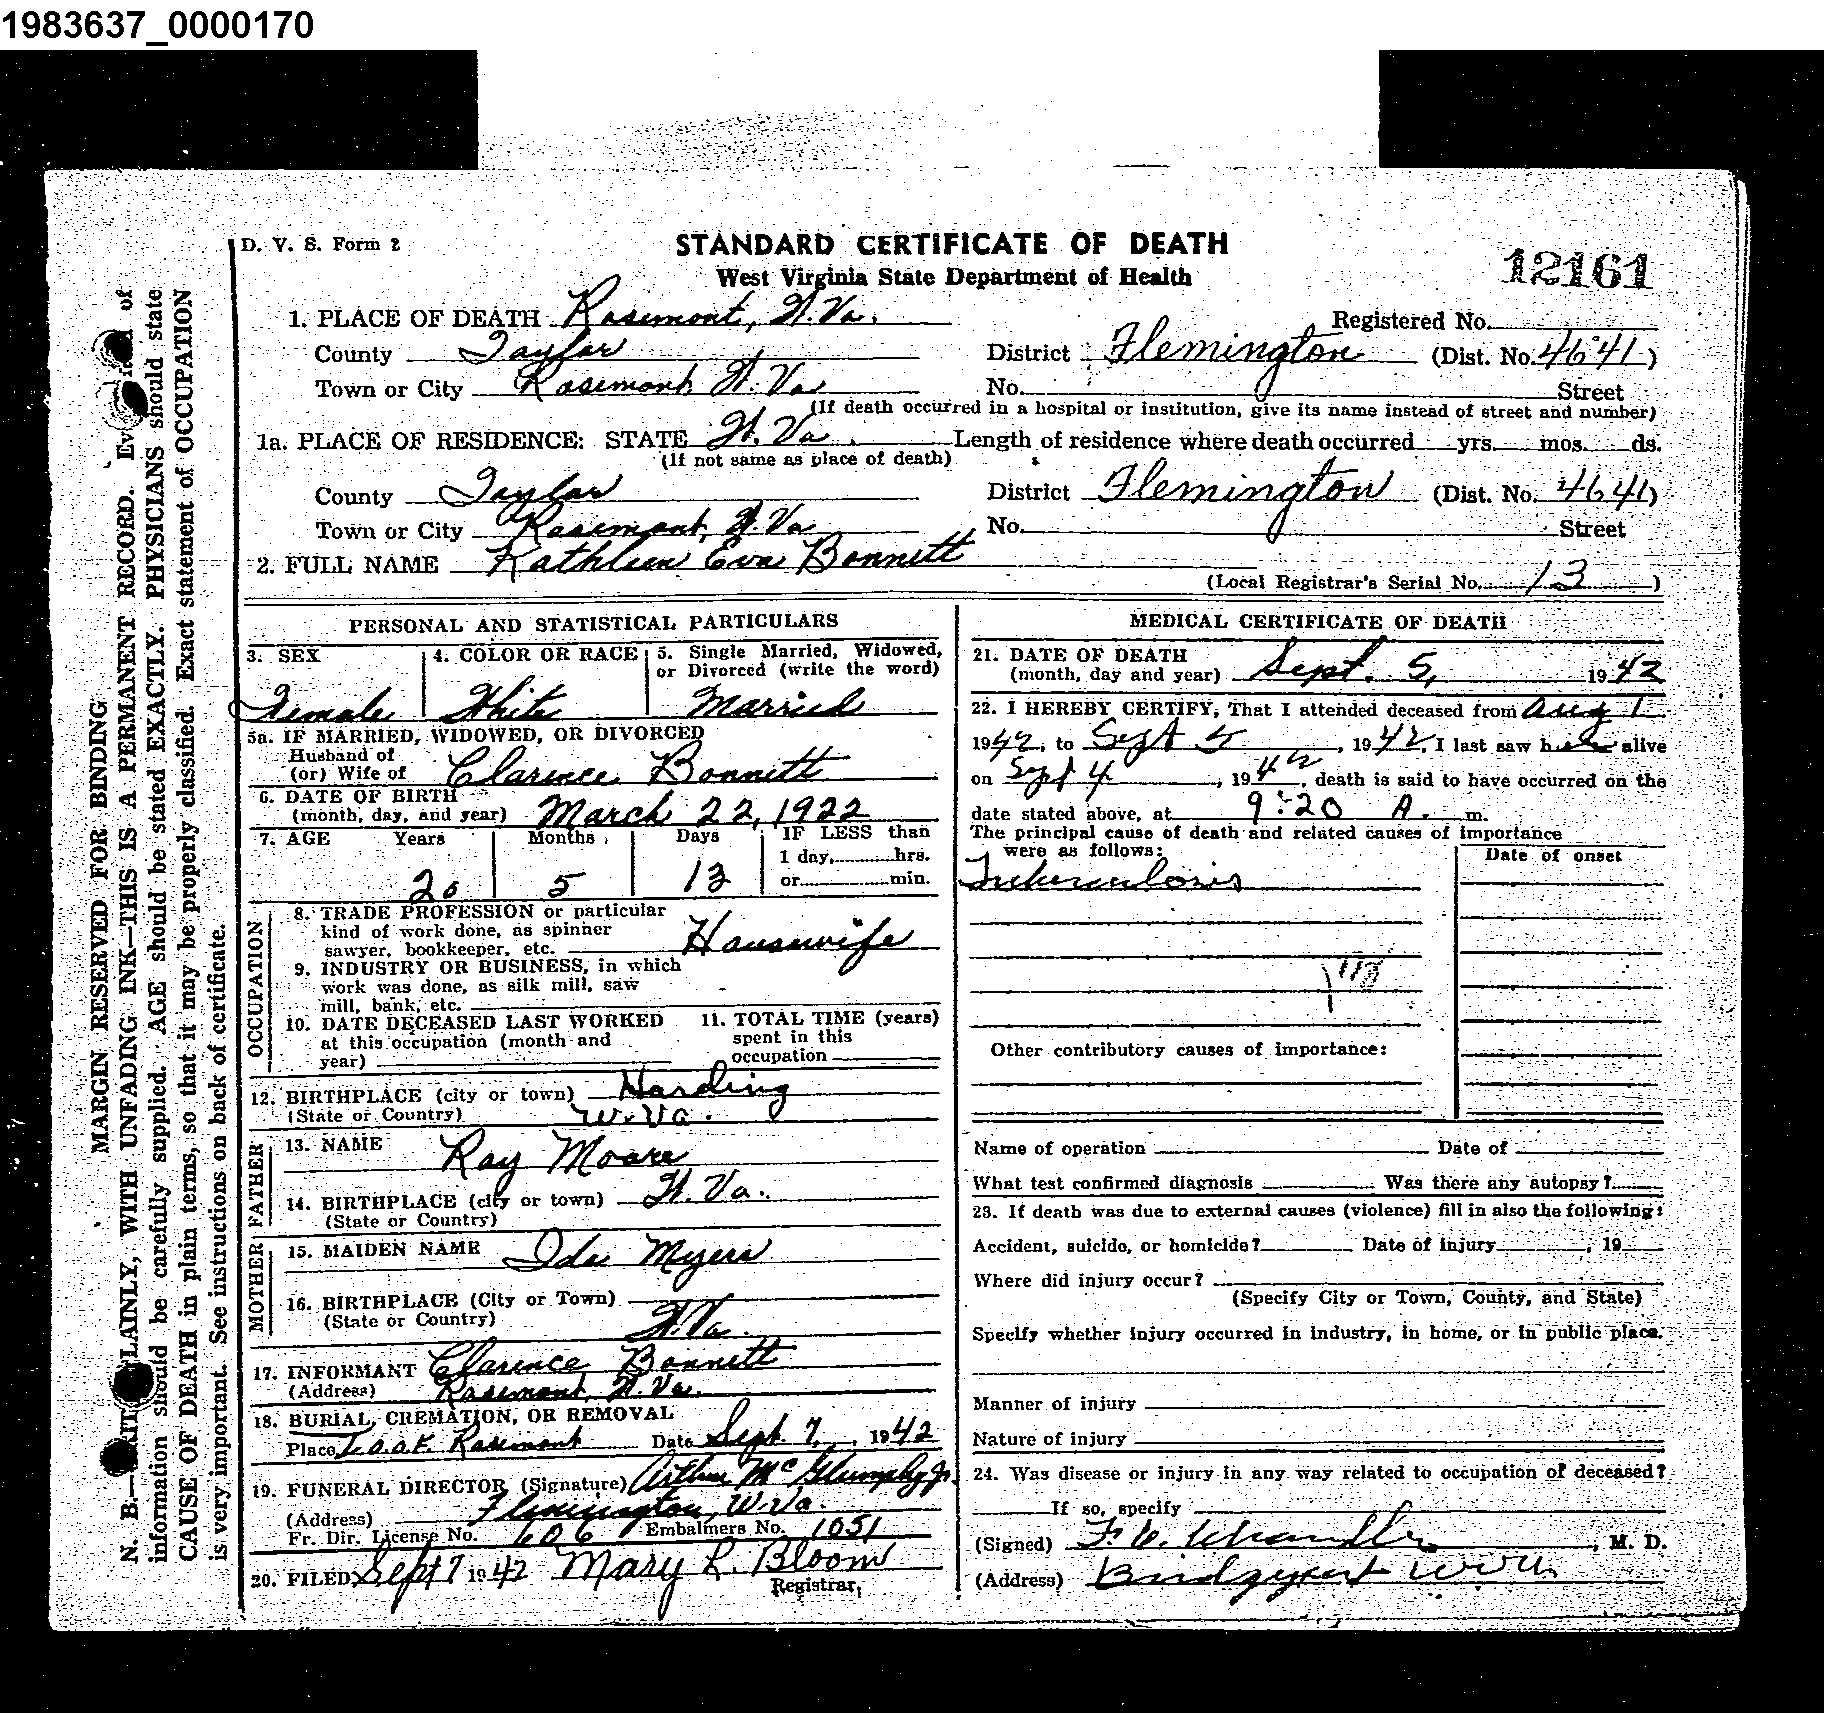 1983637_0000170
D. V. S. Form 2
STANDARD CERTIFICATE OF DEATH
West Virginia State Department of Health
12161
1. PLACE OF DEATH Rosemont, W.Va.
Registered No.
County Taylor District Flemington (Dist. No. 4641)
Town or City Rosemont, W.Va No. Street
(If death occurred in a hospital or institution, give its name instead of street and number)
1a. PLACE OF RESIDENCE: STATE W.Va. Length of residence where death occurred yrs. mos. ds.
(If not same as place of death)
County Taylor District Flemington (Dist. No. 4641)
Town or City Rosemont, W.Va No. Street
2. FULL NAME Kathleen Eva Bonnett
(Local Registrar's Serial No. 13)
PERSONAL AND STATISTICAL PARTICULARS
3. SEX 4. COLOR OR RACE 5. Single Married, Widowed,
or Divorced (write the word)
Female White Married
5a. IF MARRIED, WIDOWED, OR DIVORCED
Husband of
(or) Wife of Clarence Bonnett
6. DATE OF BIRTH
(month, day, and year) March 22, 1922
7. AGE Years Months Days IF LESS than
1 day, hrs.
or min.
20 5 13
OCCUPATION
8. TRADE PROFESSION or particular
kind of work done, as spinner
sawyer, bookkeeper, etc. Housewife
9. INDUSTRY OR BUSINESS, in which
work was done, as silk mill, saw
mill, bank, etc.
10. DATE DECEASED LAST WORKED
at this occupation (month and
year)
11. TOTAL TIME (years)
spent in this
occupation
12. BIRTHPLACE (city or town) Harding
(State or Country) W.Va.
FATHER
13. NAME Ray Moore
14. BIRTHPLACE (city or town) W.Va.
(State or Country)
MOTHER
15. MAIDEN NAME Ida Myers
16. BIRTHPLACE (City or Town)
(State or Country) W.Va.
17. INFORMANT Clarence Bonnett
(Address) Rosemont, W.Va.
18. BURIAL, CREMATION, OR REMOVAL
Place I.O.O.F. Rosemont Date Sept. 7, 1942
19. FUNERAL DIRECTOR (Signature) Arthur McGlumphy Jr.
(Address) Flemington, W.Va.
Fr. Dir. License No. 606 Embalmers No. 1051
20. FILED Sept 7 1942 Mary L. Bloom
Registrar,
MEDICAL CERTIFICATE OF DEATH
21. DATE OF DEATH
(month, day and year) Sept. 5, 1942
22. I HEREBY CERTIFY, That I attended deceased from Aug 1
1942, to Sept 5, 1942, I last saw her alive
on Sept 4, 1942, death is said to have occurred on the
date stated above, at 9:20 A. m.
The principal cause of death and related causes of importance
were as follows:
Date of onset
Tuberculosis
Other contributory causes of importance:
Name of operation Date of
What test confirmed diagnosis Was there any autopsy?
23. If death was due to external causes (violence) fill in also the following:
Accident, suicide, or homicide? Date of injury , 19
Where did injury occur?
(Specify City or Town, County, and State)
Specify whether injury occurred in industry, in home, or in public place.
Manner of injury
Nature of injury
24. Was disease or injury in any way related to occupation of deceased?
If so, specify
(Signed) F. C. Chandler, M. D.
(Address) Bridgeport W Va
MARGIN RESERVED FOR BINDING
LAINLY, WITH UNFADING INK—THIS IS A PERMANENT RECORD. of
information should be carefully supplied. AGE should be stated EXACTLY. PHYSICIANS should state
CAUSE OF DEATH in plain terms, so that it may be properly classified. Exact statement of OCCUPATION
is very important. See instructions on back of certificate.